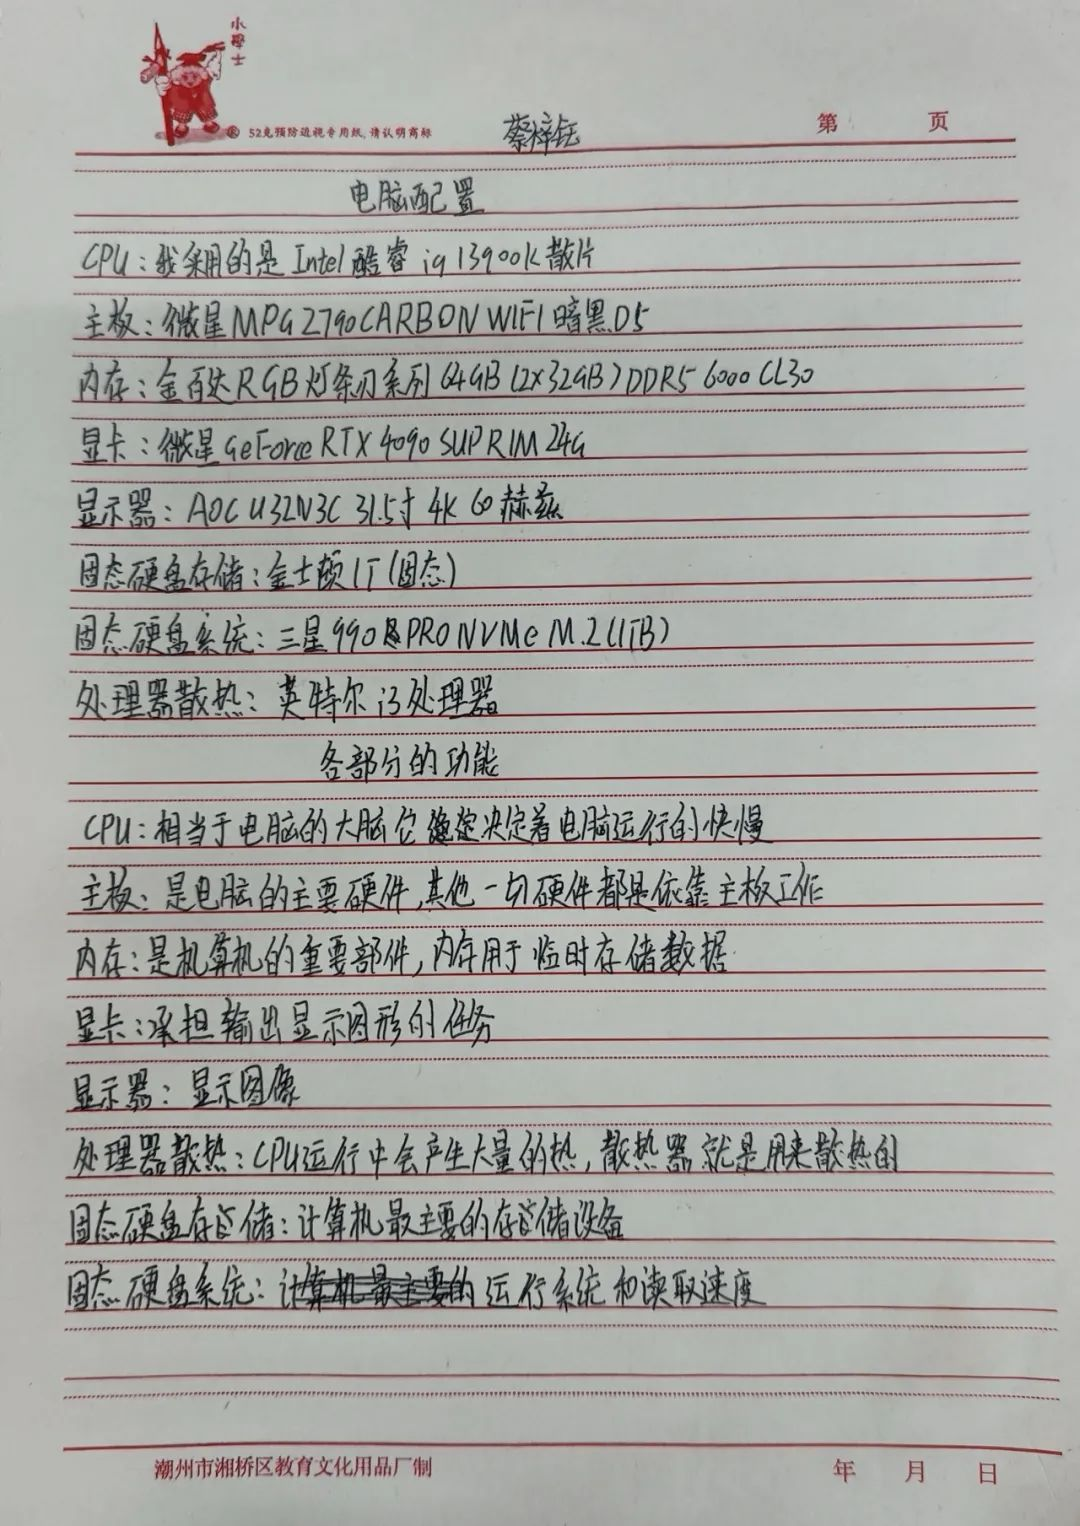 小学士
52克预防近视专用纸,请认明商标
蔡梓钰
第 页
电脑配置
CPU：我采用的是Intel酷睿 i9 13900K散片
主板：微星MPG Z790CARBON WIFI暗黑D5
内存：金百达RGB灯条刃系列64GB(2X32GB)DDR5 6000 CL30
显卡：微星GeForce RTX 4090 SUPRIM 24G
显示器：AOC U32N3C 31.5寸 4K 60赫兹
固态硬盘存储：金士顿1T(固态)
固态硬盘系统：三星990PRO NVMe M.2(1TB)
处理器散热：英特尔i3处理器
各部分的功能
CPU：相当于电脑的大脑它决定着电脑运行的快慢
主板：是电脑的主要硬件,其他一切硬件都是依靠主板工作
内存：是机算机的重要部件,内存用于临时存储数据
显卡：承担输出显示图形的任务
显示器：显示图像
处理器散热：CPU运行中会产生大量的热,散热器就是用来散热的
固态硬盘存储：计算机最主要的存储设备
固态硬盘系统：计算机最主要的运行系统和读取速度
潮州市湘桥区教育文化用品厂制
年 月 日